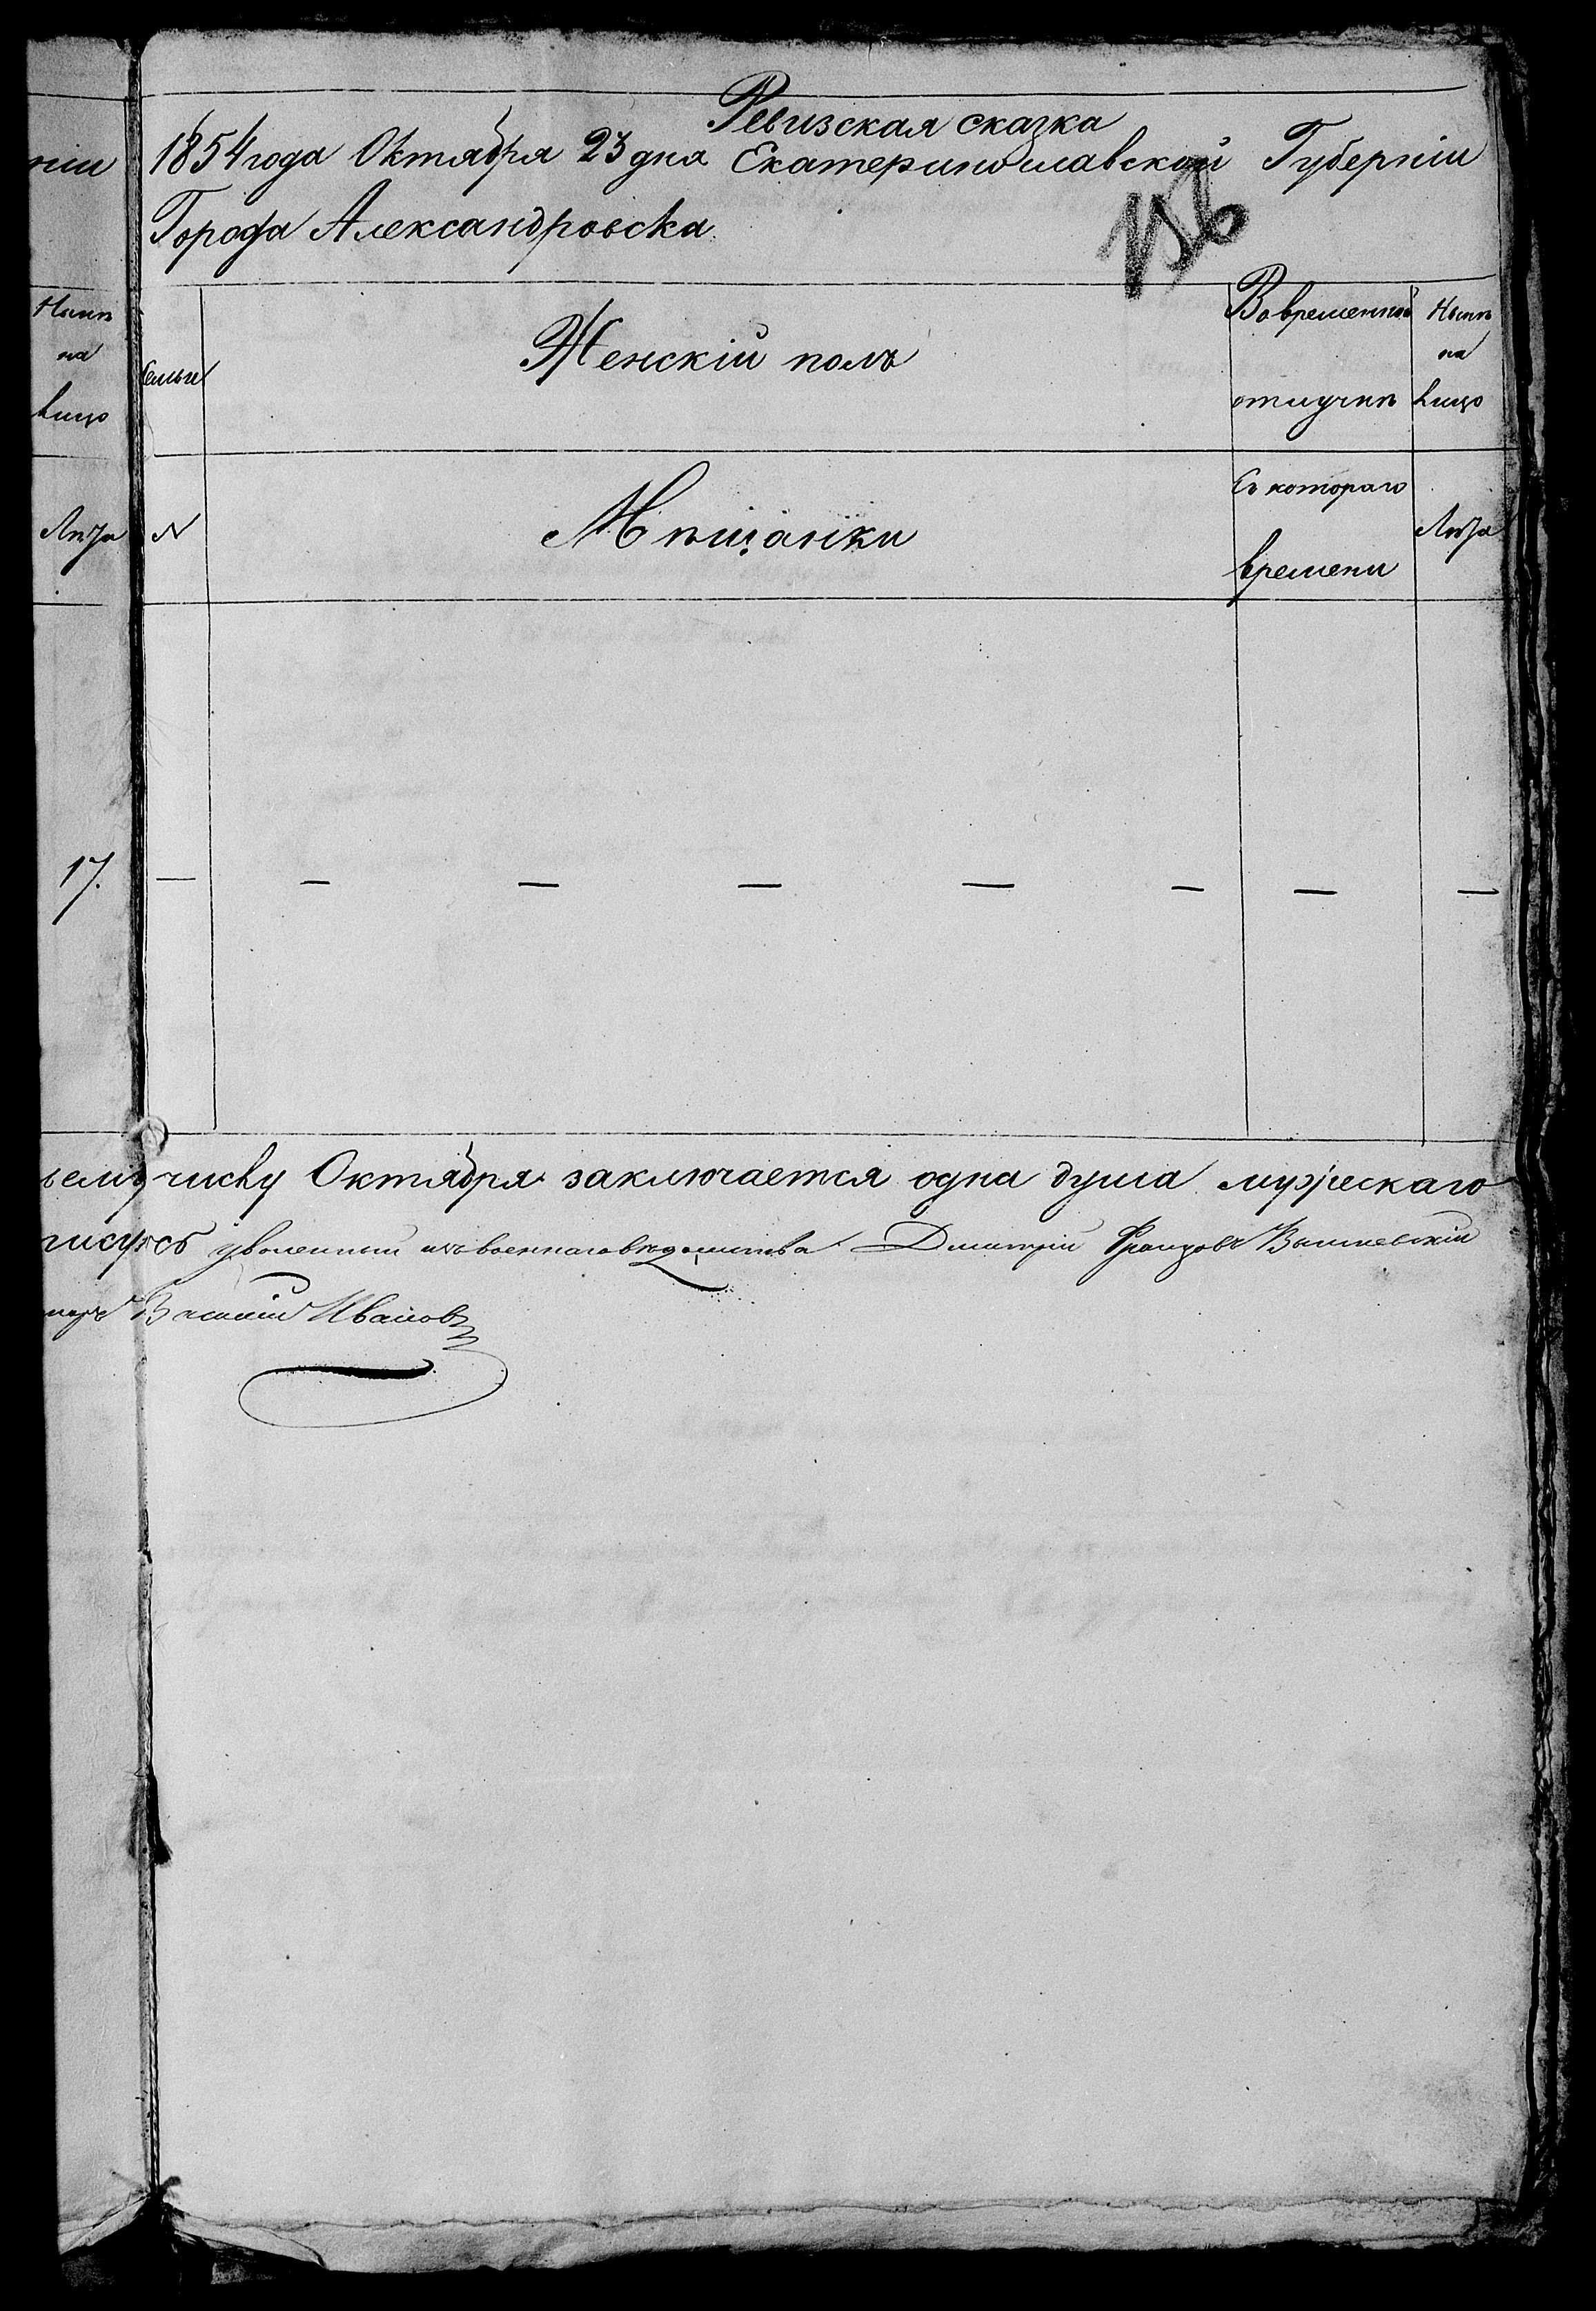 Ревизская сказка
1854 года Октября 23 дня Екатеринославской Губерніи
Города Александровска
Семьи
Женскій полъ
Во временной
отлучкѣ
Нынѣ
на
лицо
N
Мѣщанки
Съ котораго
времени
Лѣта
— — — — — — — —
нiи
Нынѣ
на
лицо
Лѣта
17.
числу Октября заключается одна душа мужескаго
уволенный изъ военнаго вѣдомства Дмитрій Францовъ Вышневскій
Василій Ивановъ